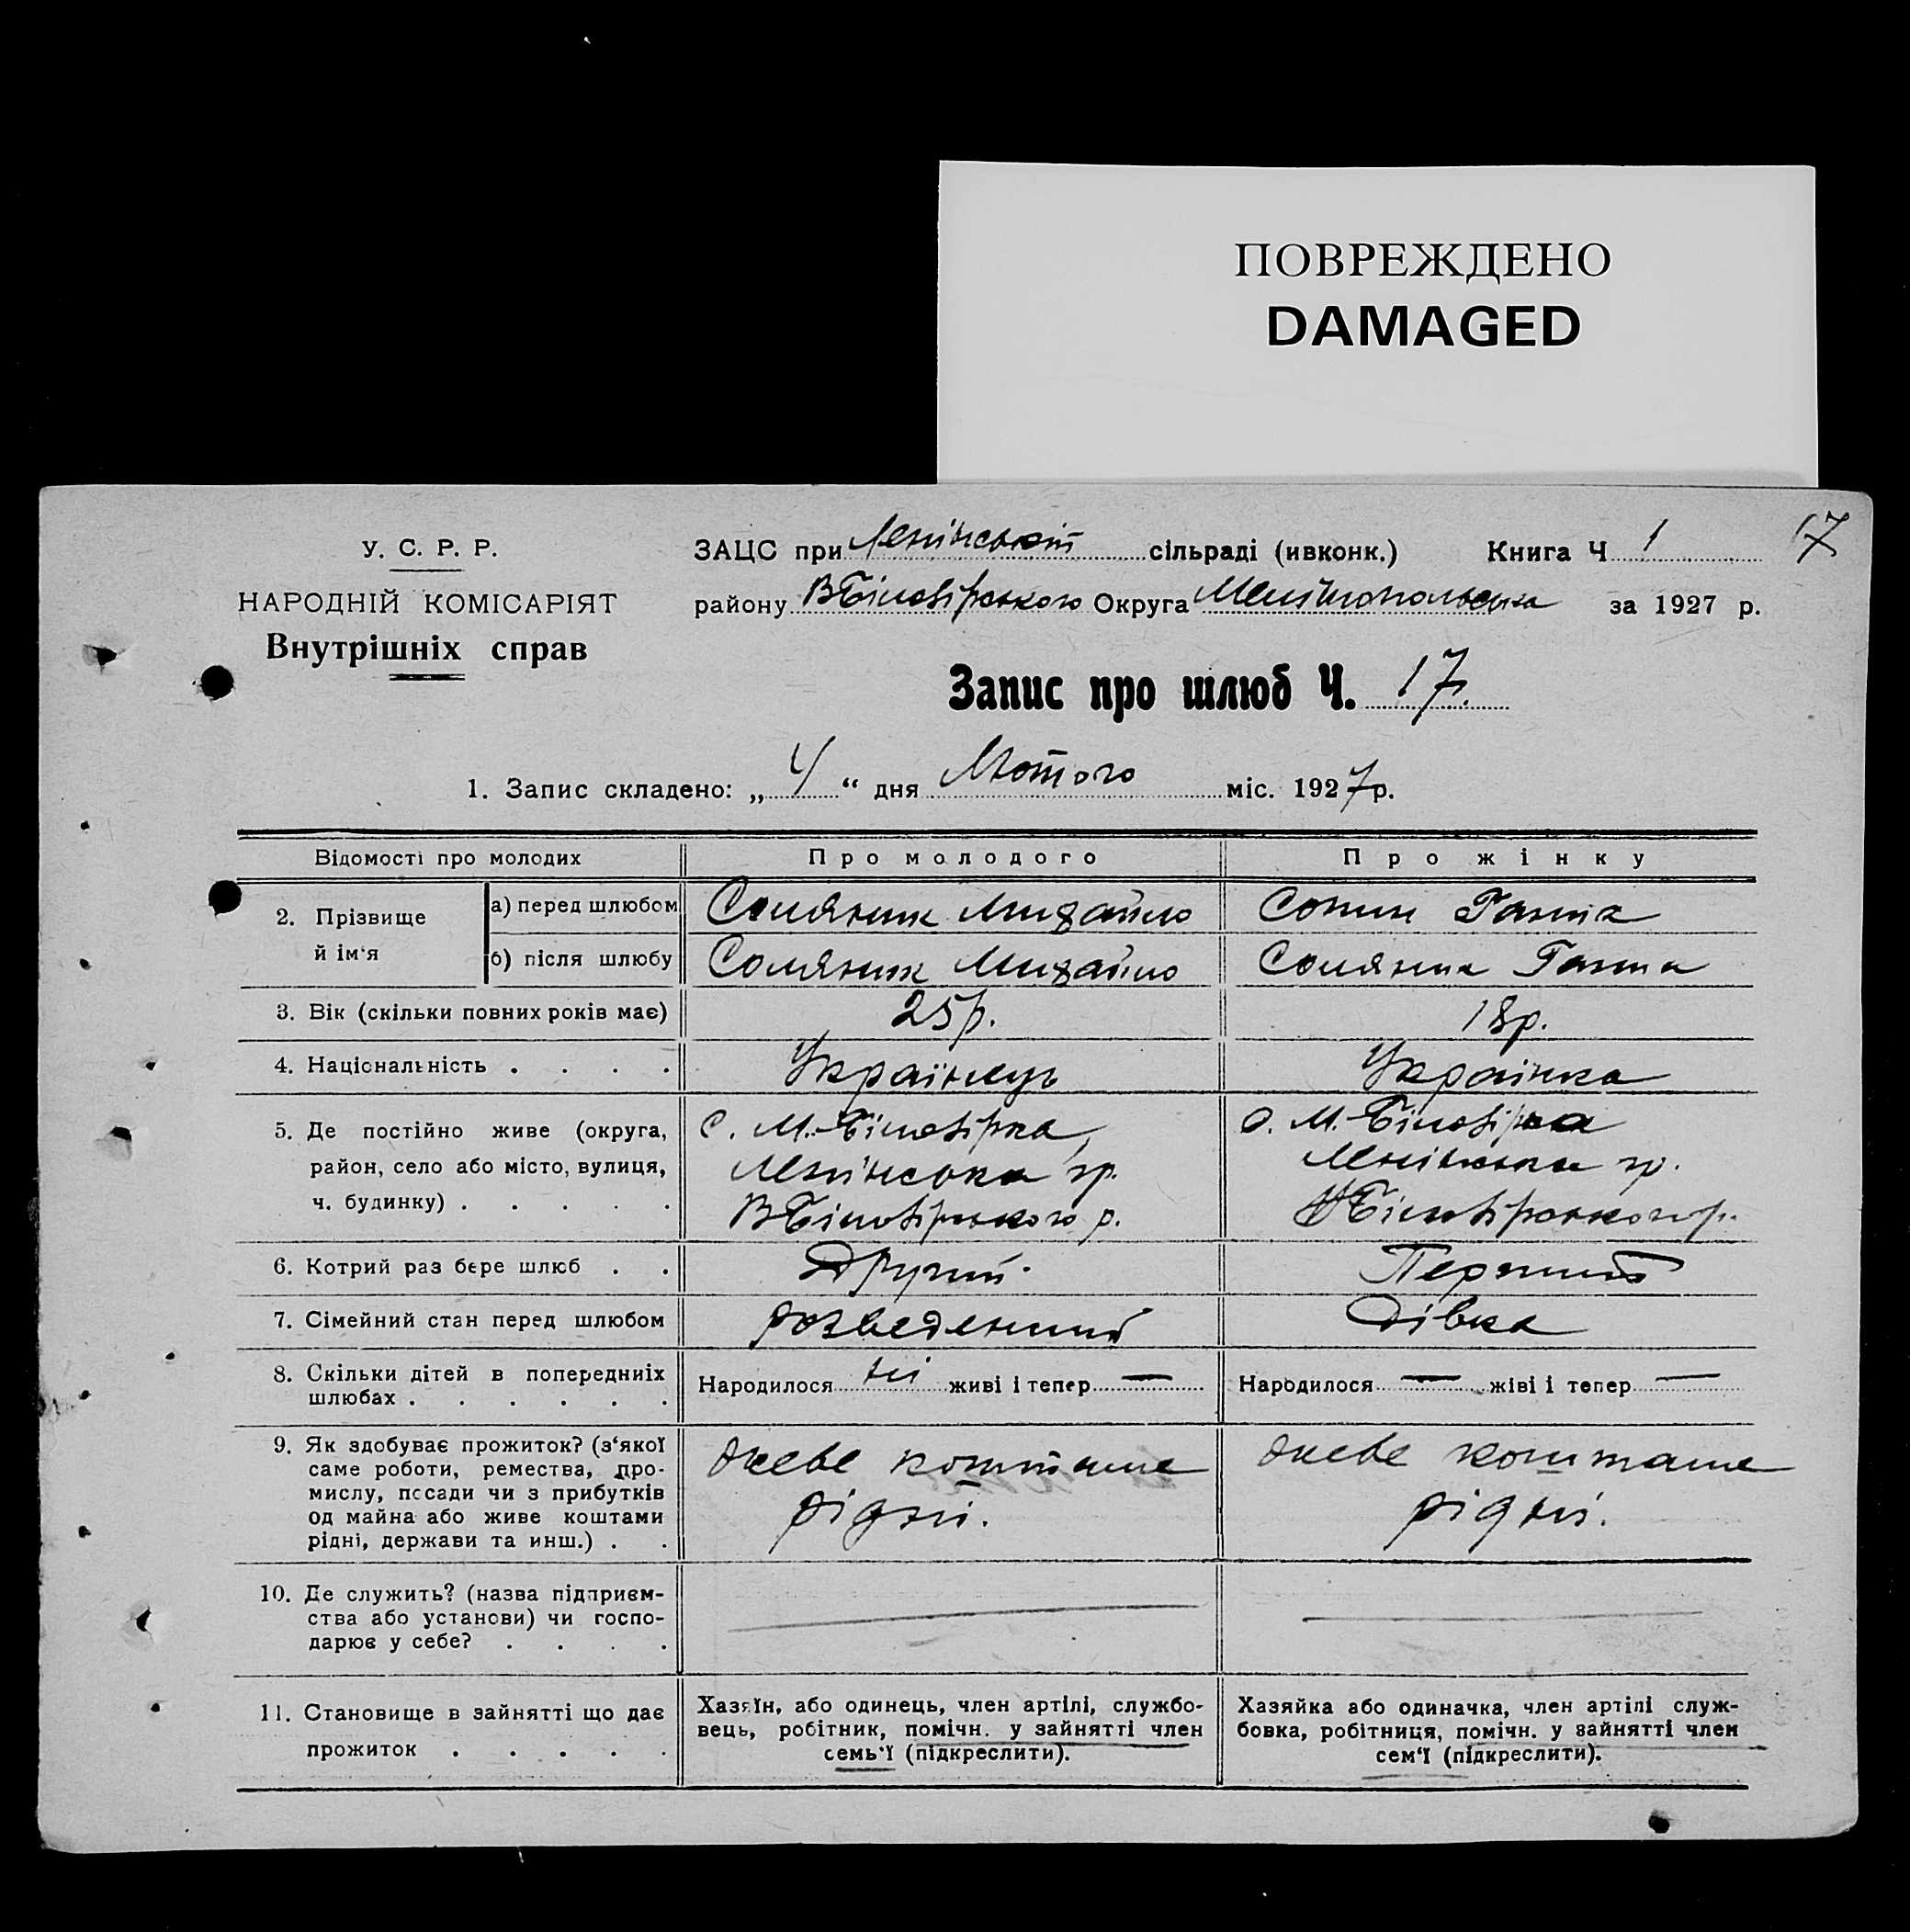 ПОВРЕЖДЕНО
DAMAGED
У. С. Р. Р.
НАРОДНІЙ КОМІСАРІЯТ
Внутрішніх справ
ЗАЦС при Ленінській сільраді (ивконк.) Книга Ч 1 17
району ВБіловірського Округа Мелітопольська за 1927 р.
Запис про шлюб Ч. 17.
1. Запис складено: „ 4 “ дня Лютого міс. 1927 р.
Відомості про молодих Про молодого Про жінку
2. Прізвище й ім‘я
а) перед шлюбом Соляник Михайло Сопин Ганна
б) після шлюбу Соляник Михайло Соляник Ганна
3. Вік (скільки повних років має) 25 р. 18 р.
4. Національність . . . . Українець Українка
5. Де постійно живе (округа,
район, село або місто, вулиця,
ч. будинку) . . . . .
с. М.-Біловірка,
Ленінська гр.
ВБіловірського р.
с. М.-Біловірка
Ленінська гр.
ВБіловірського р.
6. Котрий раз бере шлюб . . Другий. Перший
7. Сімейний стан перед шлюбом розведений дівка
8. Скільки дітей в попередніх
шлюбах . . . . . .
Народилося ні живі і тепер — Народилося — жіві і тепер —
9. Як здобуває прожиток? (з‘якої
саме роботи, ремества, про-
мислу, посади чи з прибутків
од майна або живе коштами
рідні, держави та инш.) . .
живе коштами
рідні.
живе коштами
рідні.
10. Де служить? (назва підприєм-
ства або установи) чи госпо-
дарює у себе? . . . .
11. Становище в зайнятті що дає
прожиток . . . . .
Хазяїн, або одинець, член артілі, службо-
вець, робітник, помічн. у зайнятті член
семь‘ї (підкреслити).
Хазяйка або одиначка, член артілі служ-
бовка, робітниця, помічн. у зайнятті член
сем‘ї (підкреслити).